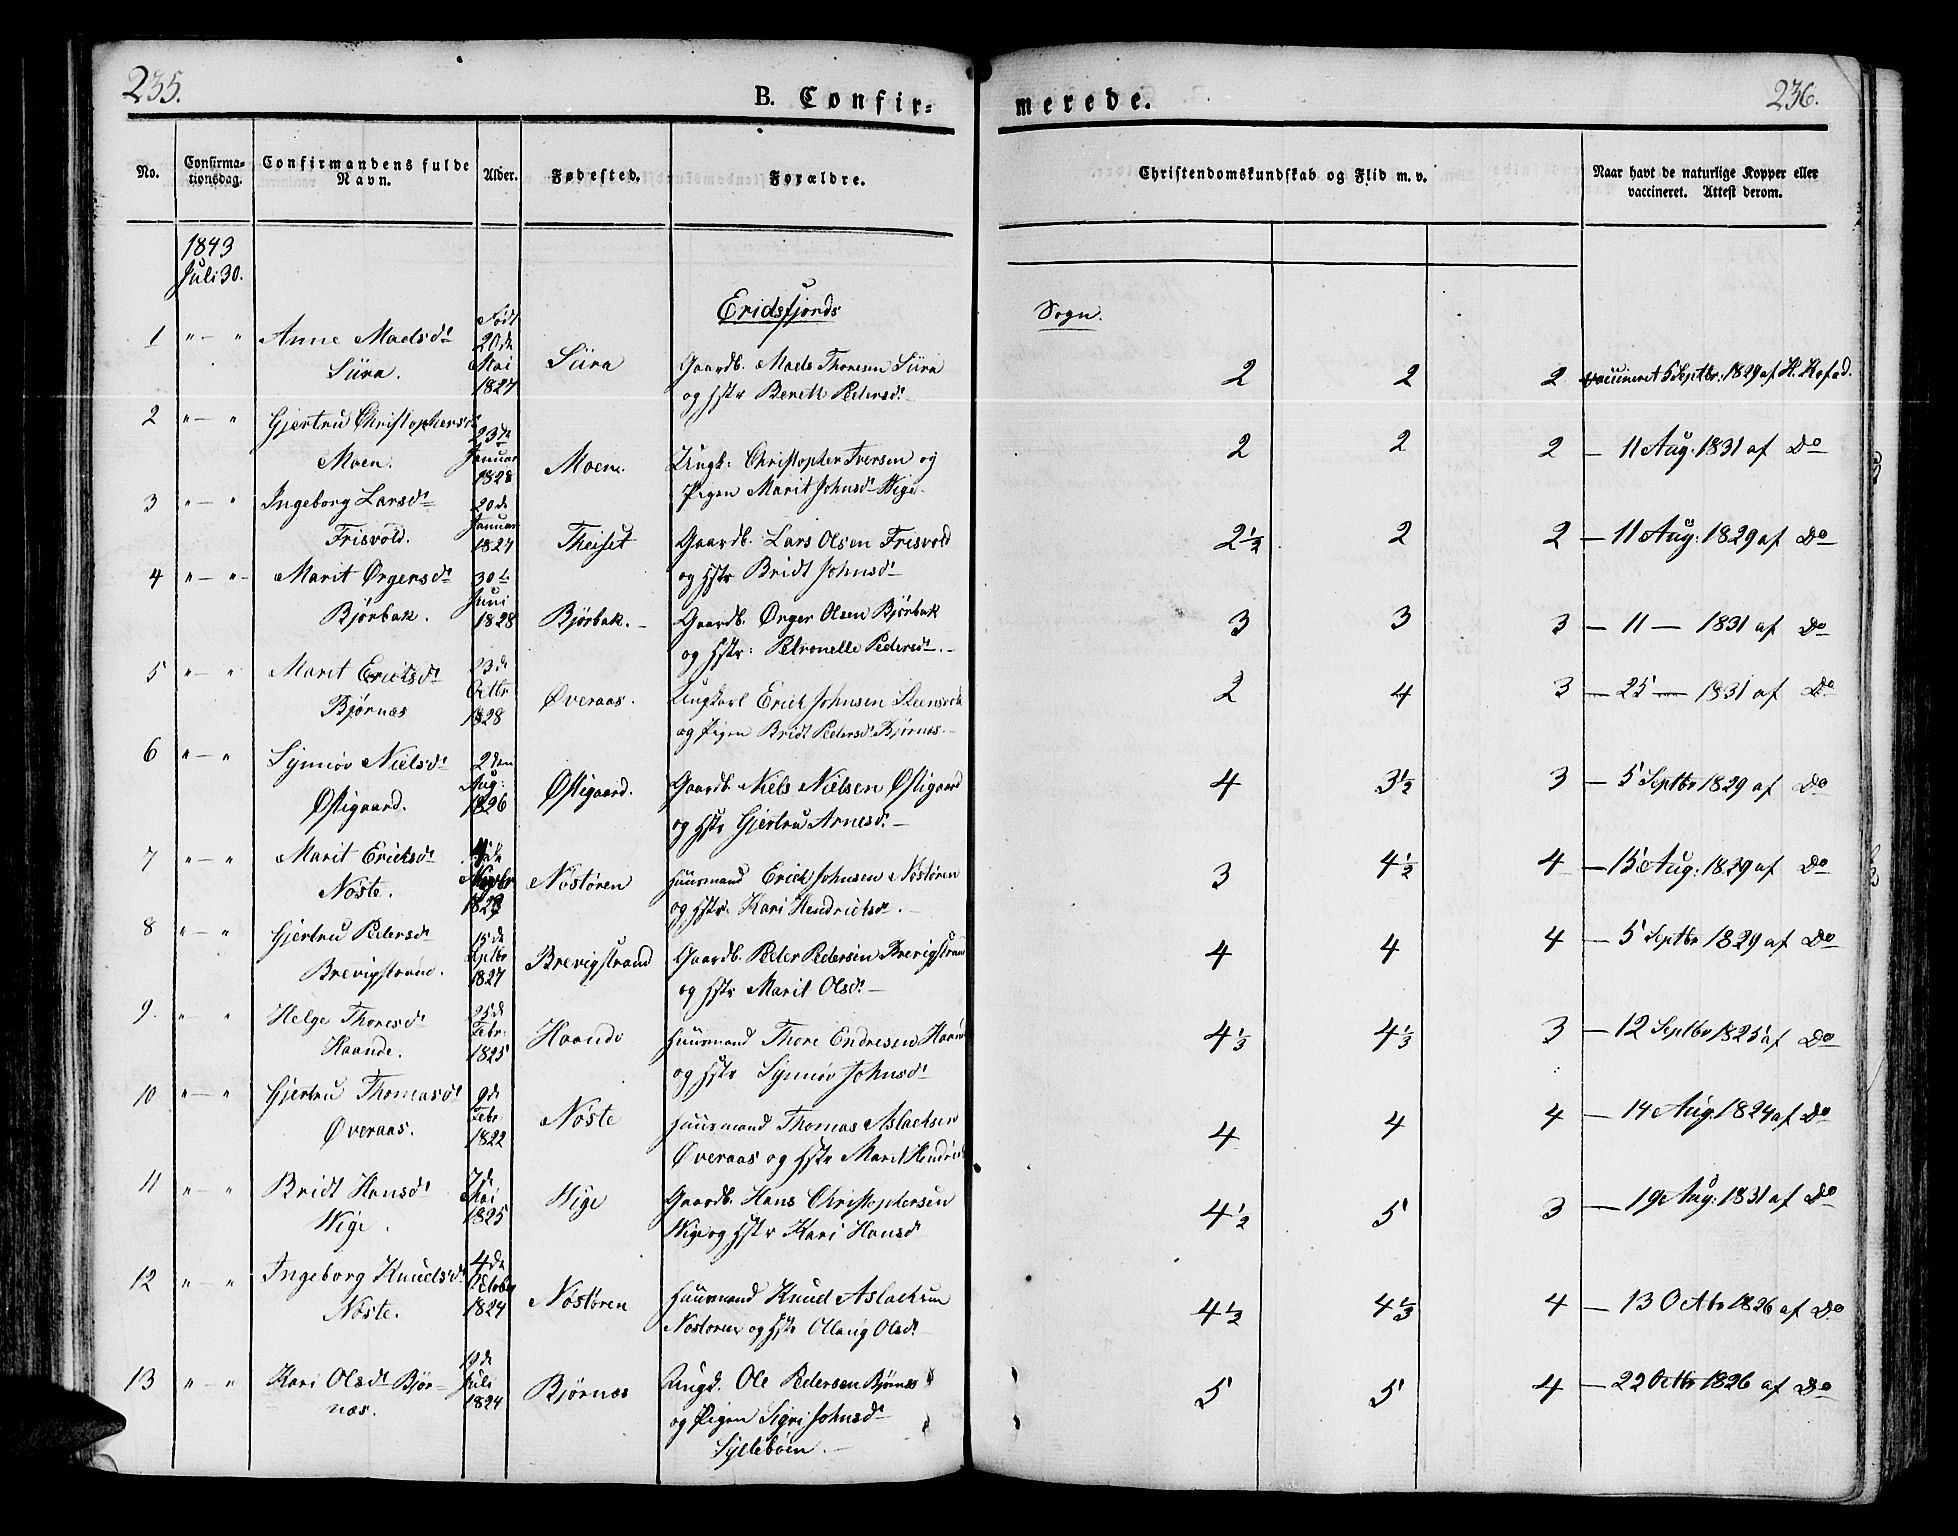 235.
B. Confir-
merede.
236.
No.
Confirma-
tionsdag.
Confirmandens fulde
Navn.
Alder.
Fødested.
Forældre.
Christendomskundskab og Flid m. v.
Naar havt de naturlige Kopper eller
vaccineret. Attest derom.
1843
Juli 30.
Eridsfjords
Sogn.
1 " — " Anne Madsd.
Siira.
Født
20de
Mai
1827
Siira
Gaardb. Mads Thoresen Siira
og Hstr Berett Pedersd. —
2 2 2 vaccineret 5 Septbr: 1829 af H. Hofod.
2 " — " Gjertru Christophersd.
Moen.
23de
Januar
1828
Moen.
Ungk: Christopher Iversen og
Pigen Marit Johnsd. Wige.
2 2 2 — 11 Aug: 1831 af Do
3 " — " Ingeborg Larsd.
Frisvold.
20de
Januar
1827
Theiset
Gaardb. Lars Olsen Frisvold
og Hstr Bridt Johnsd. —
2½ 2 2 — 11 Aug: 1829 af Do
4 " — " — Marit Ørgersd.
Bjørbak.
30te
Juni
1828
Bjørbak. —
Gaardb. Ørger Olsen Bjørbak
og Hstr: Petronelle Pedersd. —
3 3 3 — 11 — 1831 af Do
5 " — " Marit Ericksd.
Bjørnæs
23de
Octbr
1828
Øveraas.
Ungkarl Erick Johnsen
og Pigen Bridt Pedersd. Bjørnæs. —
2 4 3 — 25 — 1831 af Do
6 " — " Synnøv Nielsd.
Østigaard.
2den
Aug:
1826
Østigaard.
Gaardb. Niels Nielsen Østigaard
og Hstr Gjertru Arnesd. —
4 3½ 3 — 5 Septbr 1829 af Do
7 " — " Marit Ericksd.
Nøste.
Nøstøren
Huusmand Erick Johnsen Nøstøren
og Hstr. Kari Hendricksd. —
3 4½ 4 — 15 Aug: 1829 af Do
8 " — " Gjertru Pedersd.
Brevigstrand.
15de
Septbr
1827
Brevigstrand
Gaardb. Peder Pedersen Brevigstrand
og Hstr Marit Olsd. —
4 4 4 — 5 Septbr 1829 af Do
9. " " Helge Thoresd.
Haande.
25de
Febr:
1825
Haande
Huusmand Thore Endresen Haand
og Hstr Synnøv Johnsd.
4⅓ 4⅓ 3 — 12 Septbr 1825 af Do
10 " — " Gjertru Thomasd.
Øveraas.
9de
Febr
1822
Nøste
Huusmand Thomas Aslacksen
Øveraas og Hstr Marit Hendricks
4 4 4 — 14 Aug. 1824 af Do
11 " — " Bridt Hansd.
Wige.
7de
Mai
1825
Wige
Gaardb. Hans Christophersen
Wige og Hstr Kari Hansd
4½ 5 3 — 19 Aug: 1831 af Do
12 " — " Ingeborg Knudsd.
Nøste.
4de
October
1824
Nøstøren
Huusmand Knud Aslacksen
Nøstøren og Hstr Ollaug Olsd. —
4½ 4⅓ 4 — 13 Octbr 1826 af Do
13 " — " Kari Olsd. Bjør-
næs.
Juli
1824
Bjørnæs
Ungd. Ole Pedersen Bjørnæs
og Pigen Sigri Johnsd.
Syltebøen. —
5 5 4 — 22 Octbr 1826 af Do